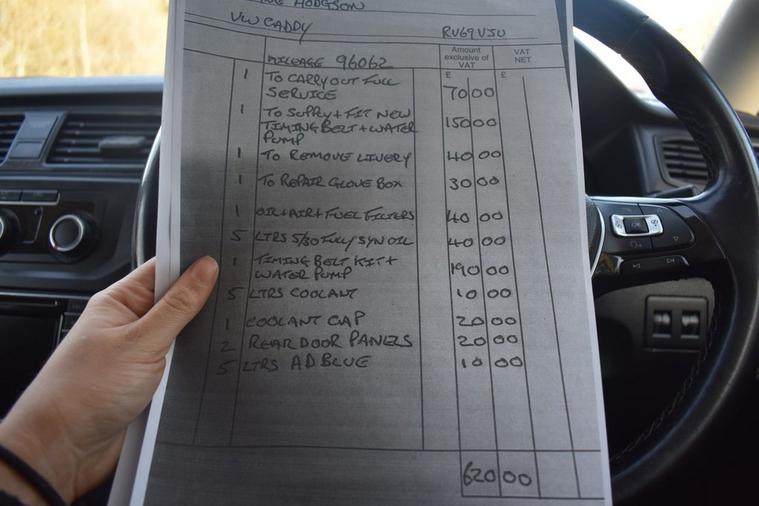 HODGSON
VW CADDY RV69VJU
Amount exclusive of VAT VAT NET
MILEAGE 96062 £ £
1 TO CARRY OUT FULL SERVICE 70 00
1 TO SUPPLY + FIT NEW TIMING BELT + WATER PUMP 150 00
1 TO REMOVE LIVERY 40 00
1 TO REPAIR GLOVE BOX 30 00
1 OIL + AIR + FUEL FILTERS 40 00
5 LTRS 5/30 FULLY SYN OIL 40 00
1 TIMING BELT KIT + WATER PUMP 190 00
5 LTRS COOLANT 10 00
1 COOLANT CAP 20 00
2 REAR DOOR PANELS 20 00
5 LTRS AD BLUE 10 00
620 00